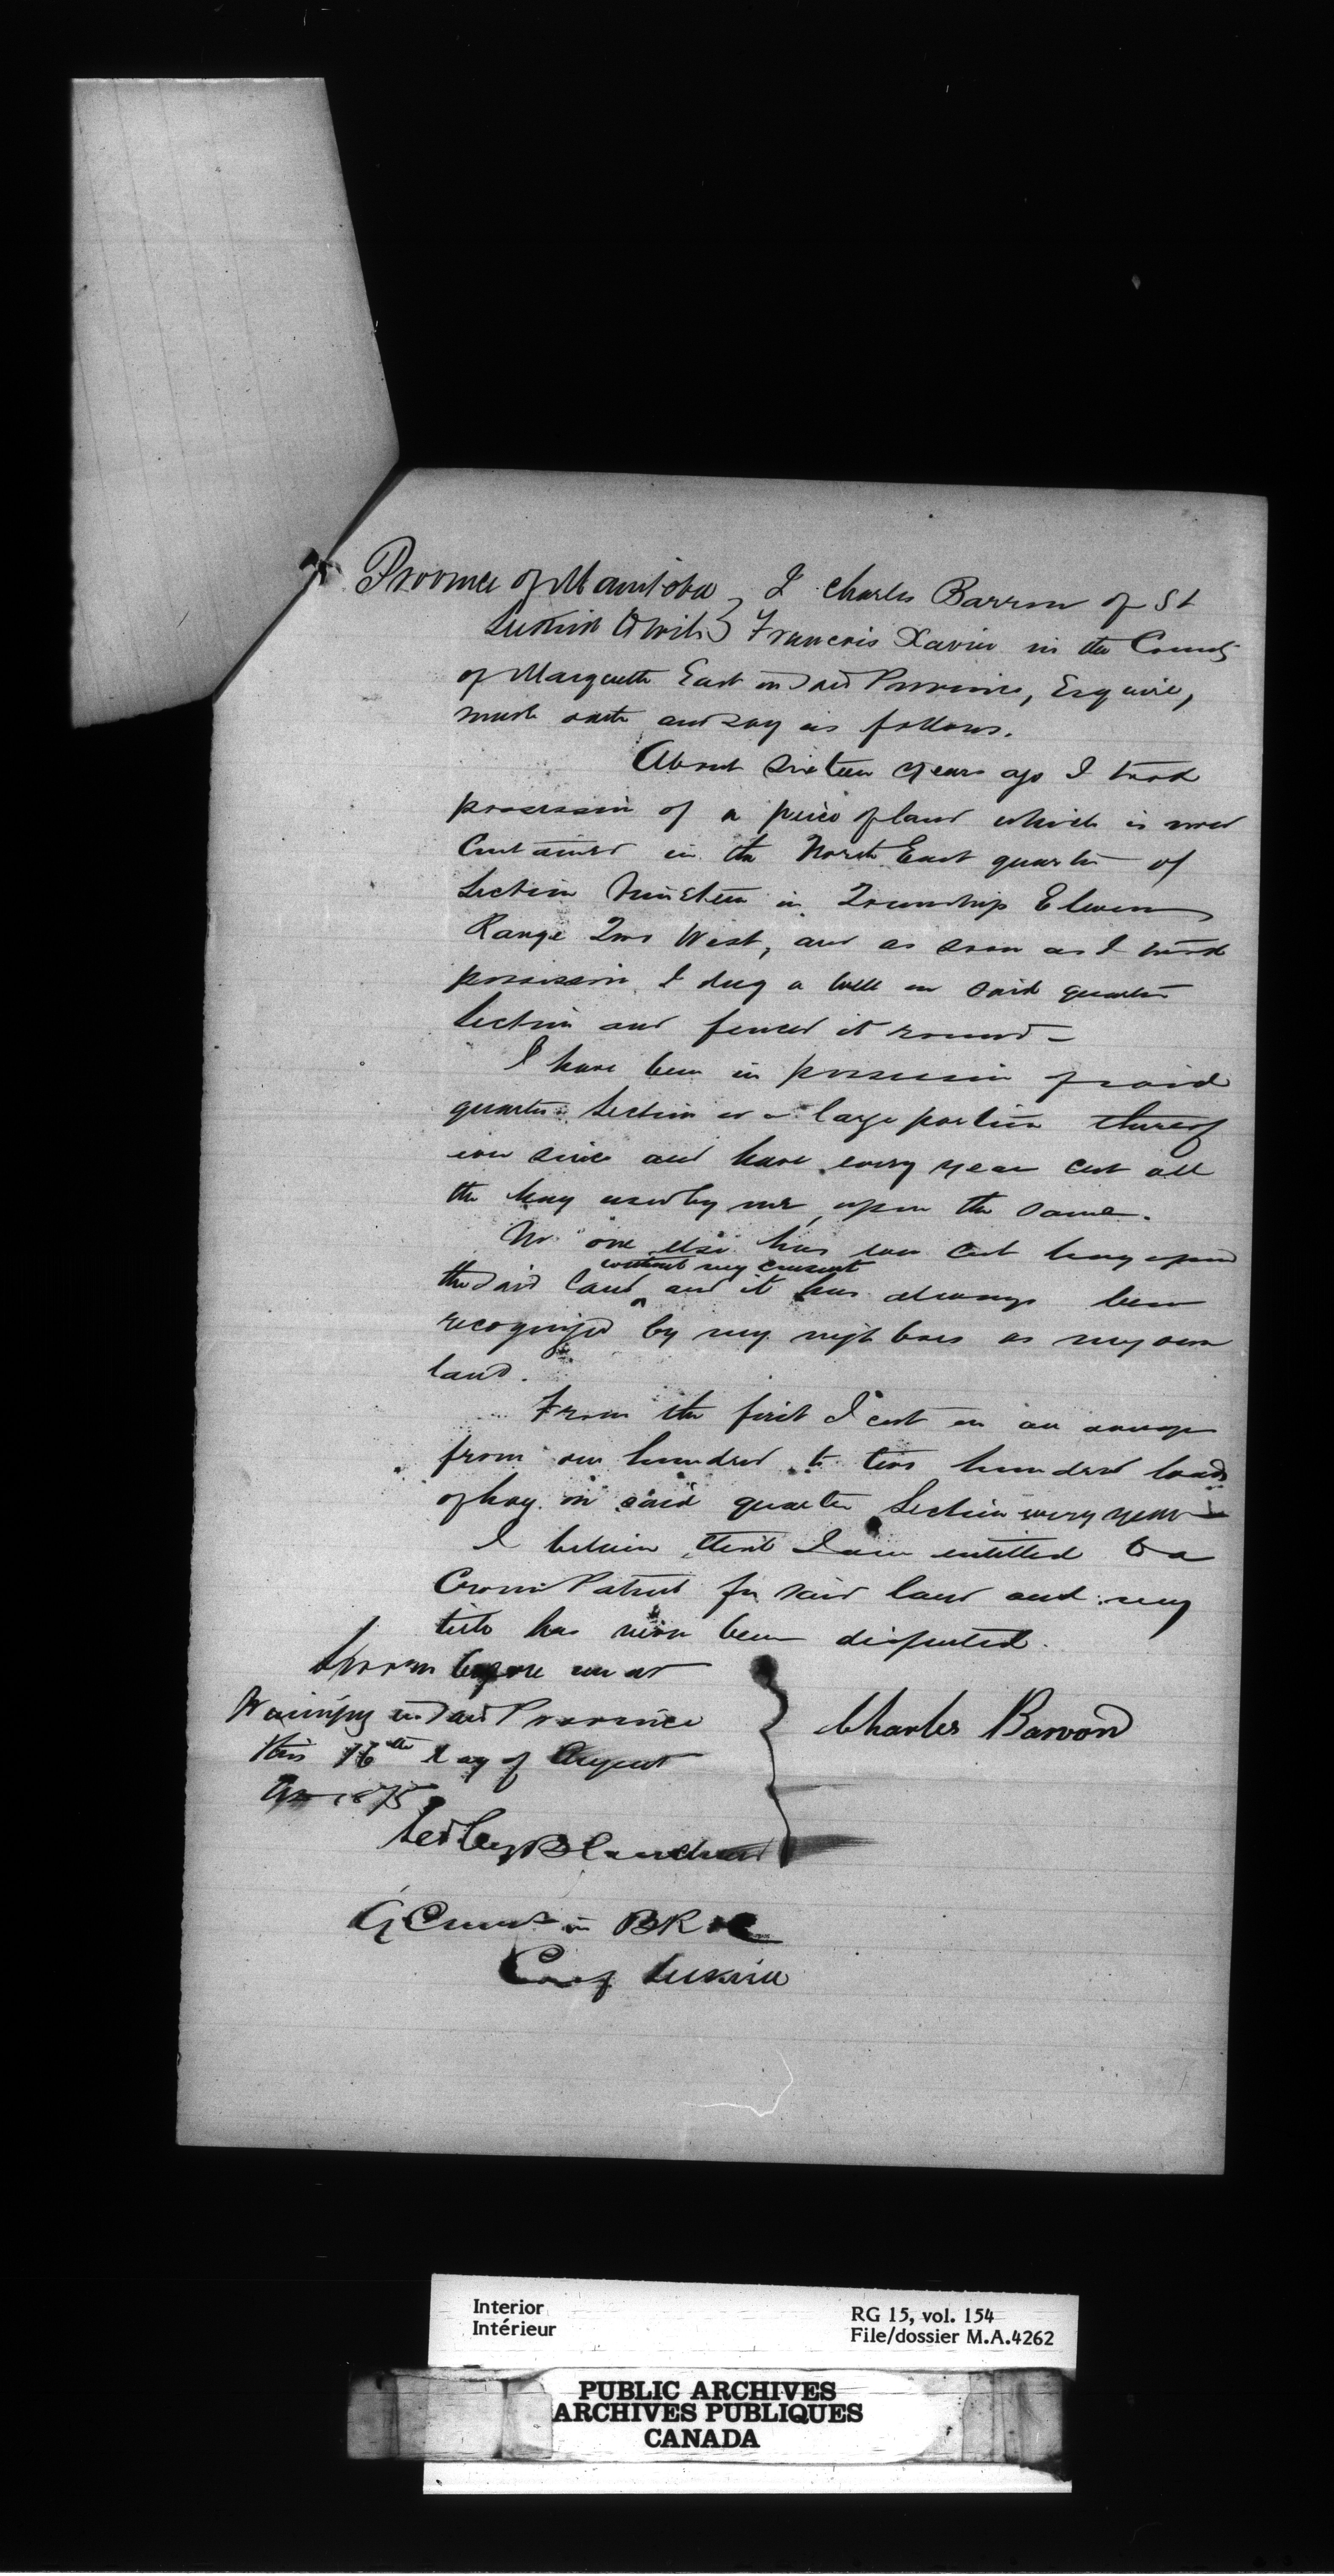 Province of Manitoba } I Charles Barron of St
To Wit } Francois Xavier in the County
of Marquette East in said Province, Esquire,
make oath and say as follows.
About sixteen years ago I took
possession of a peice of land which is now
Contained in the North East quarter of
Section Nineteen in Township Eleven
Range Two West, and as soon as I took
possession I dug a well on said quarter
Section and fenced it round –
I have been in possession of said
quarter Section or a large portion thereof
ever since and have every year cut all
the hay used by me, upon the same.
No one else has ever cut hay upon
without my consent
the said land ^ and it has always been
recognized by my neighbors as my own
land.
From the first I cut on an average
from one hundred to two hundred loads
of hay on said quarter Section every year
I believe that I am entitled to a
Crown Patent for said land and my
title has never been disputed.
Sworn before me at
Winnipeg in said Province
this 16th day of August
AD 1875
Charles Barron
Sedley Blanchard
A Commr in BR &c
Interior
Intérieur
RG 15, vol. 154
File/dossier M.A.4262
PUBLIC ARCHIVES
ARCHIVES PUBLIQUES
CANADA